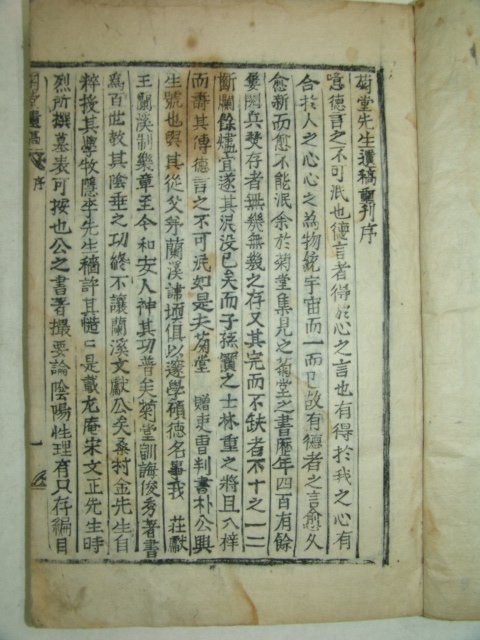 菊堂先生遺稿重刊序
噫德言之不可泯也德言者得於心之言也有得於我之心有
合於人之心心之為物統宇宙而一而已故有德者之言愈久
愈新而愈不能泯余於菊堂集見之菊堂之書歷年四百有餘
屢閱兵燹存者無幾無幾之存又其完而不缺者不十之一二
斷爛餘燼宜遂其泯没已矣而子孫寶之士林重之將且入梓
而壽其傳德言之不可泯如是夫菊堂 贈吏曹判書朴公興
生號也與其從父弟蘭溪諱堧俱以邃學碩德名畢我 莊獻
王蘭溪制樂章至今和安人神其功普矣菊堂訓誨後秀著書
為百世教其陰垂之功終不讓蘭溪文獻公矣桑村金先生自
粹授其學牧隱李先生穡許其 是載尤庵宋文正先生時
烈所撰墓表可按也公之書著撮要論陰陽性理有只存編目
菊堂遺稿 序 一